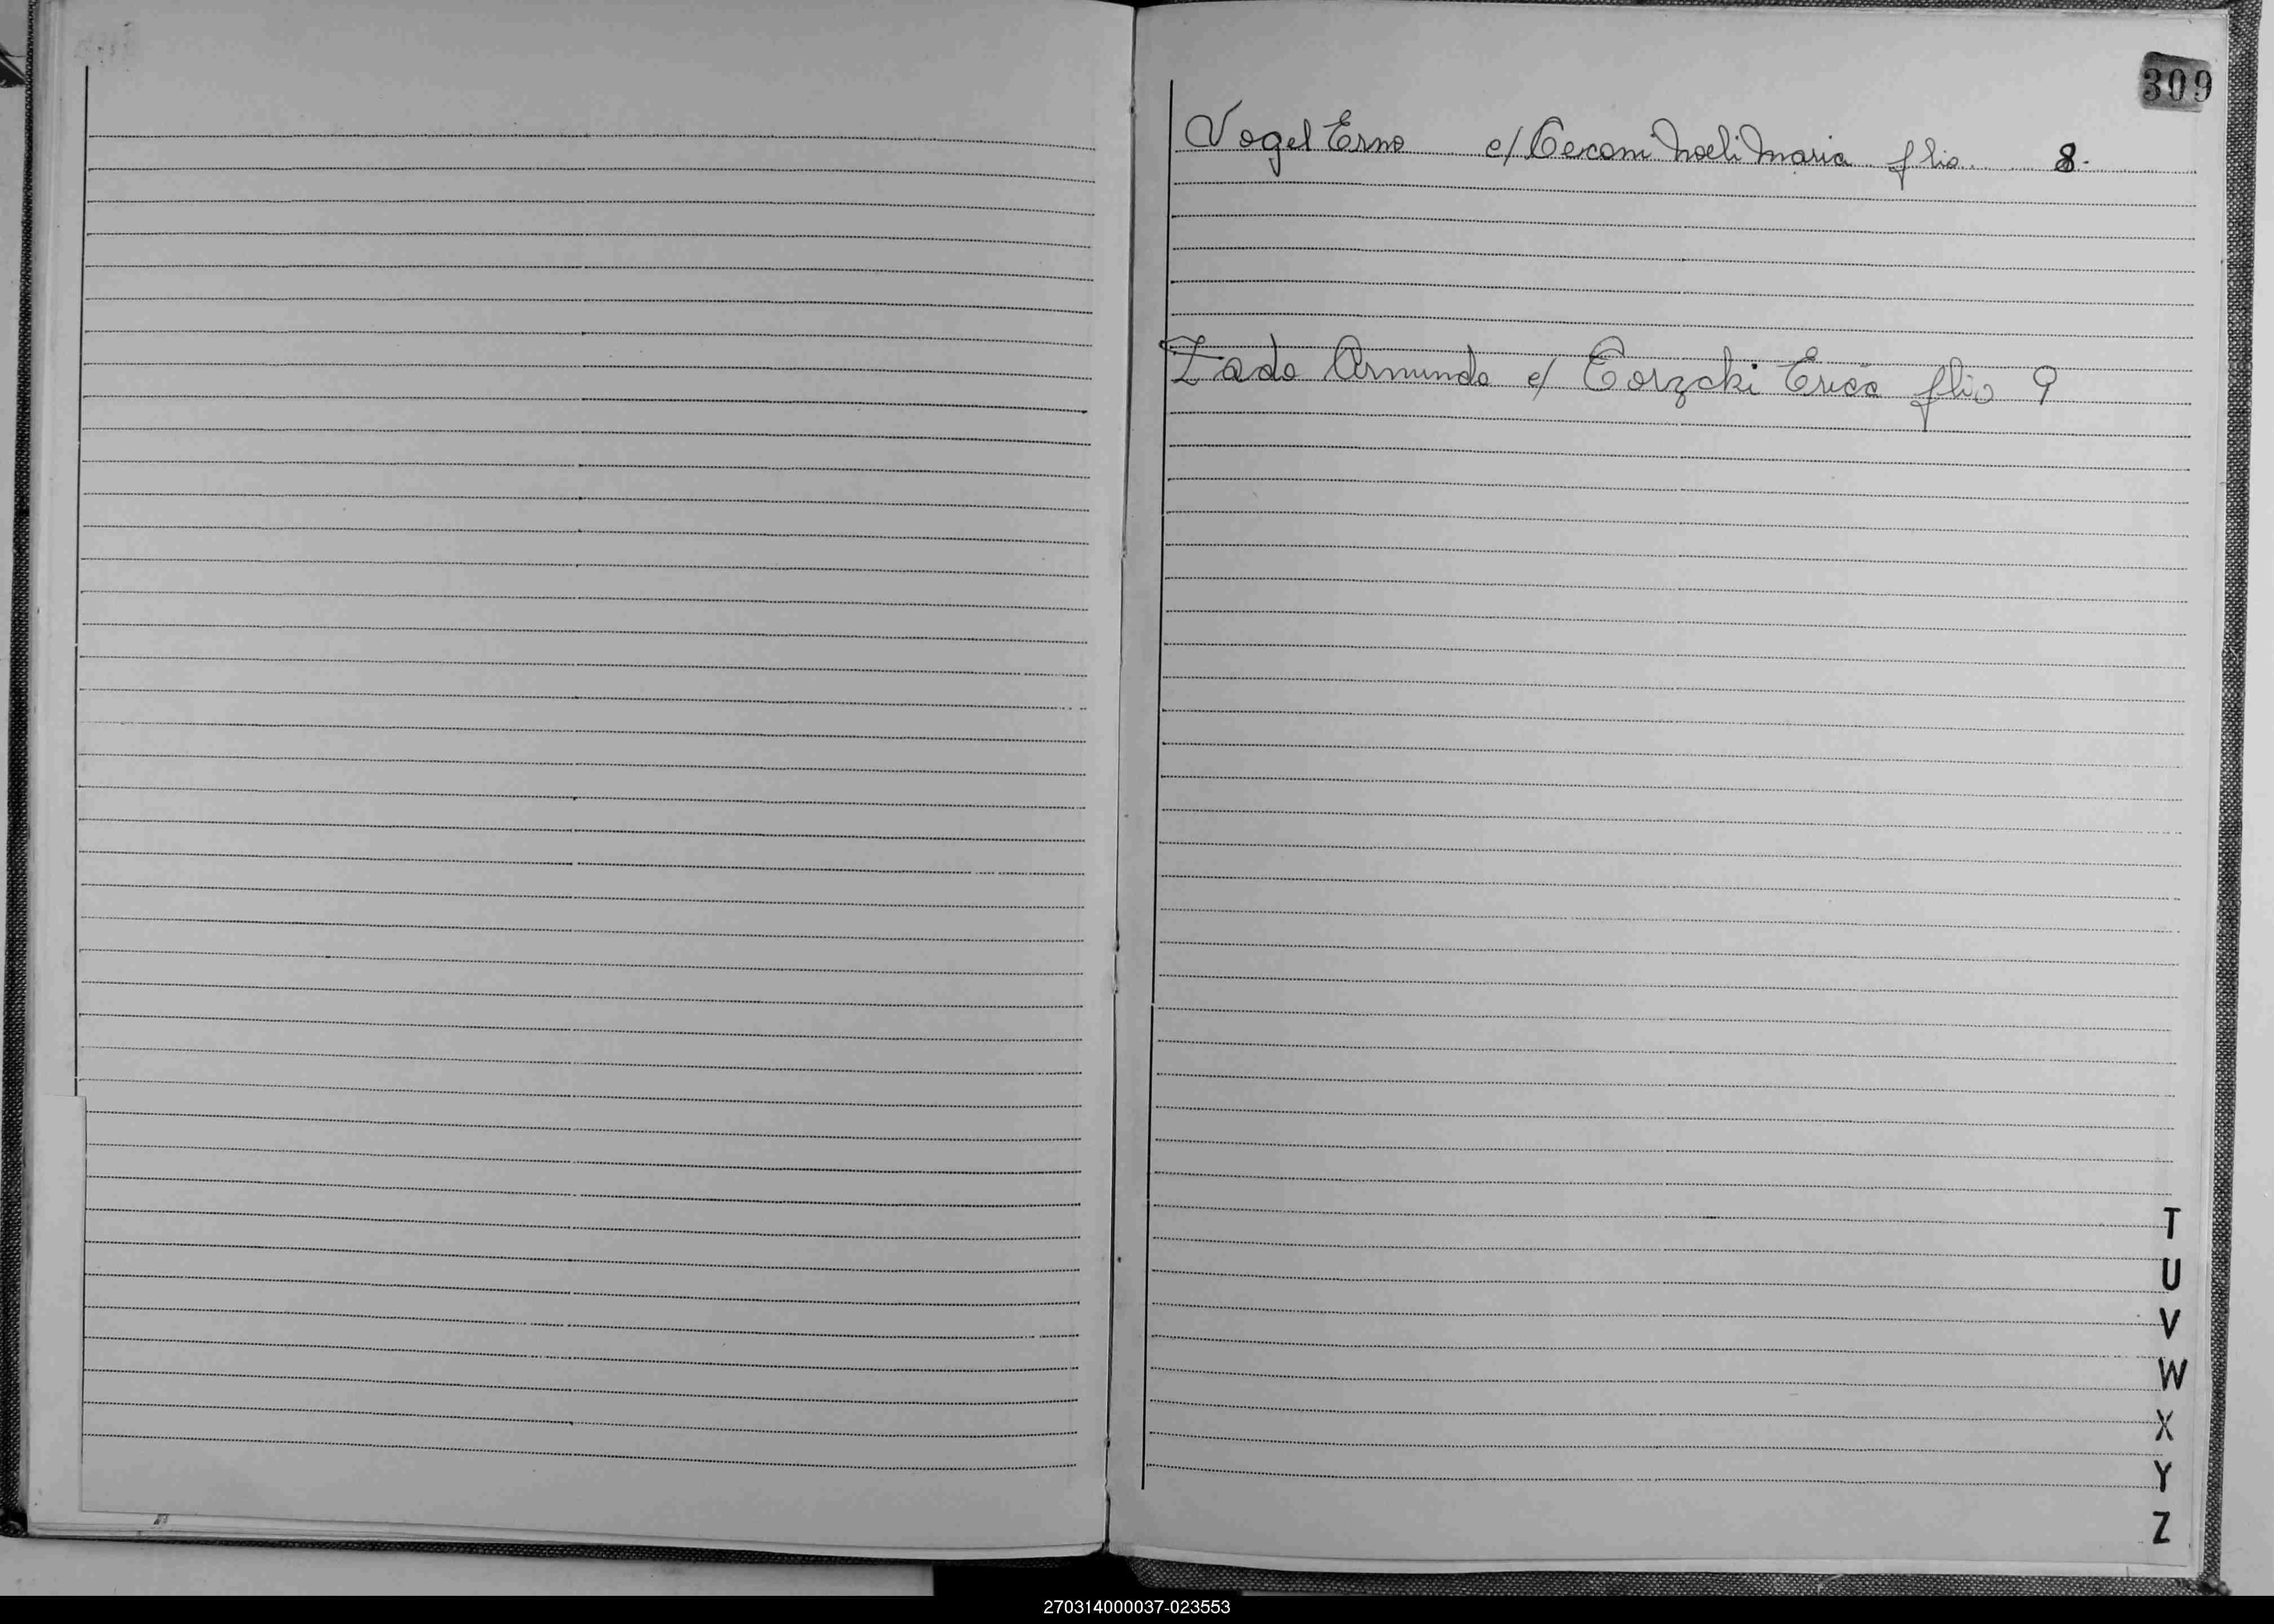 309
Vogel Erno c/ Ceconi Noeli Maria flio 8.
Zado Armindo c/ Corzcki Erica flio 9
T
U
V
W
X
Y
Z
270314000037-023553